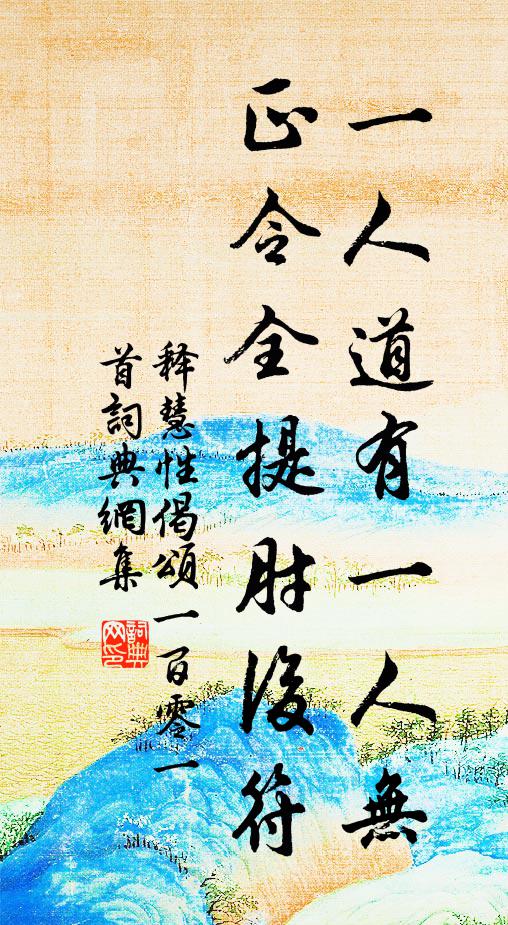 一人道有一人無
正令全提肘後符
释慧性偈頌一百零一
首詞典網集
詞典
网印